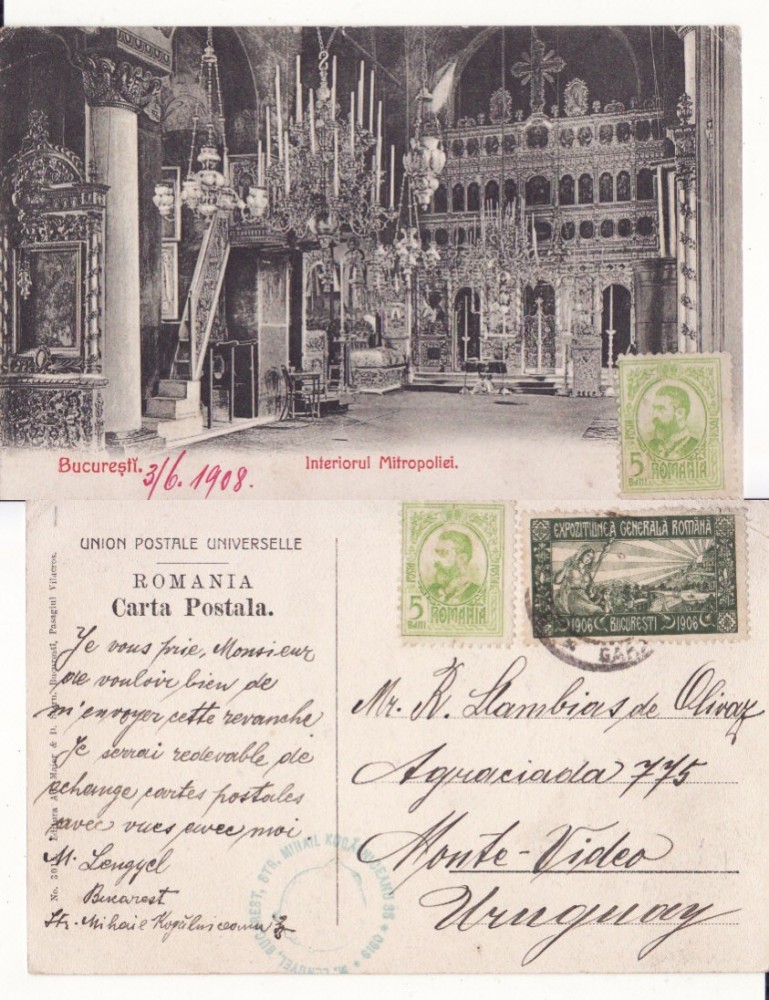 Bucureştĭ.
3/6. 1908.
Interiorul Mitropoliei.
POSTA
5
BANI
ROMANIA
UNION POSTALE UNIVERSELLE
ROMANIA
Carta Postala.
Je vous prie, Monsieur
de vouloir bien de
m'envoyer cette revanche
Je serrai redevable de
echange cartes postales
avec vues avec moi
M. Lengyel
Bucarest
Str. Mihail Kogălniceanu
POSTA
5
BANI
ROMANIA
EXPOZITIUNEA GENERALĂ ROMÂNĂ
1906 BUCURESTI 1906
GARA
Mr. R. Llambias de Olivar
Agraciada 775
Monte-Video
Uruguay
M. LENGYEL, BUCUREST, STR. MIHAIL KOGĂLNICEANU
Editura Ad. Maier & D. Stern, Bucuresti, Pasagiul Vilacros.